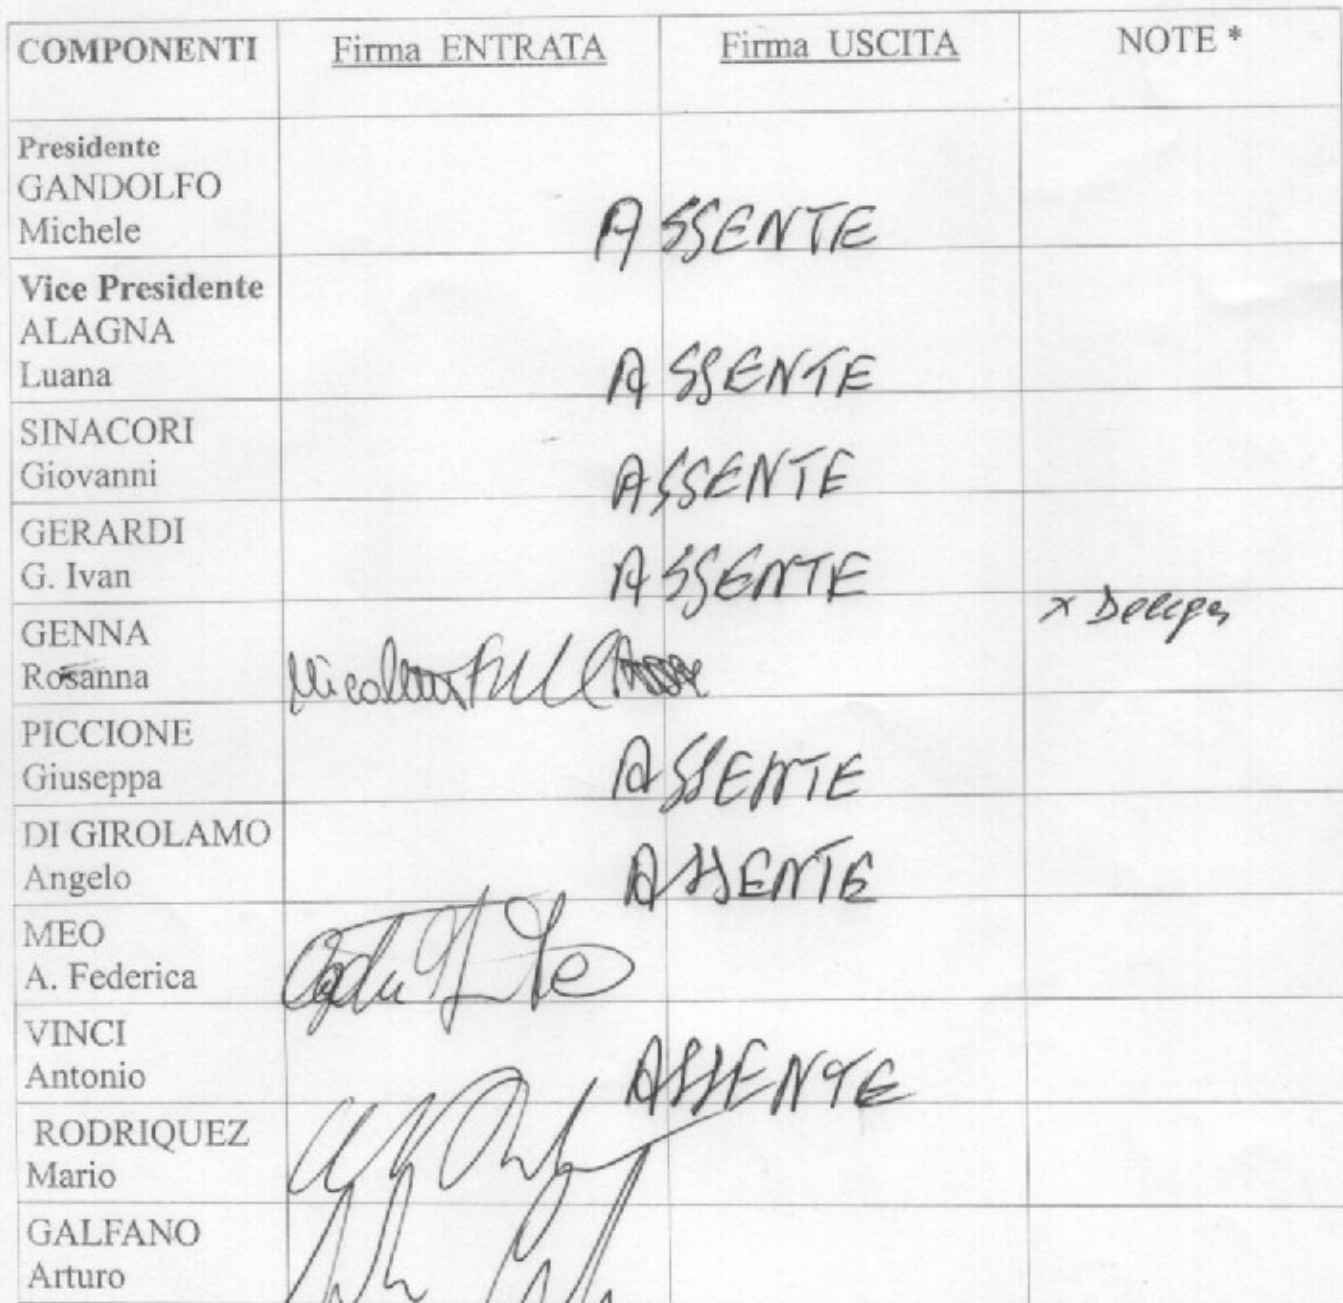 COMPONENTI Firma ENTRATA Firma USCITA NOTE *
Presidente
GANDOLFO
Michele ASSENTE
Vice Presidente
ALAGNA
Luana ASSENTE
SINACORI
Giovanni ASSENTE
GERARDI
G. Ivan ASSENTE
x Delega
GENNA
Rosanna Nicoletta
PICCIONE
Giuseppa ASSENTE
DI GIROLAMO
Angelo ASSENTE
MEO
A. Federica
VINCI
Antonio ASSENTE
RODRIQUEZ
Mario
GALFANO
Arturo